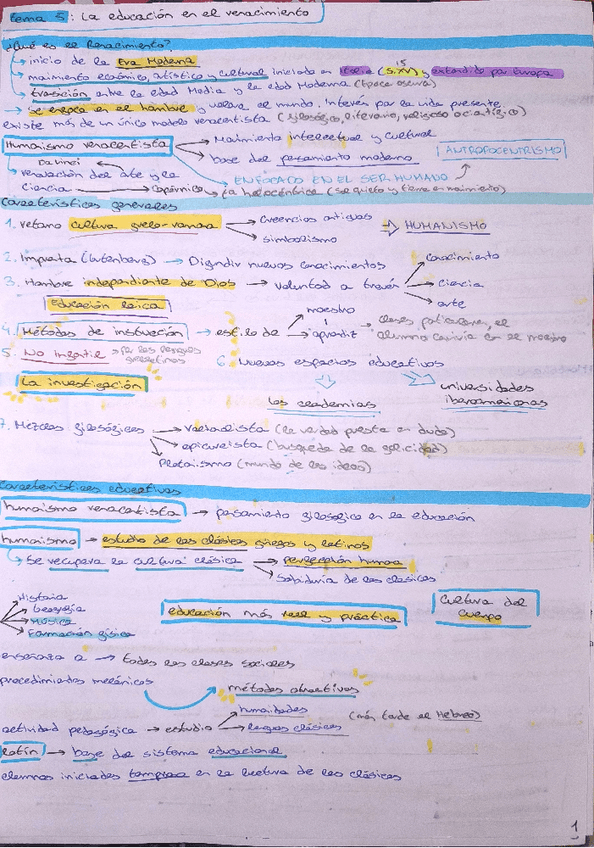 tema 5: La educación en el renacimiento
¿Qué es el Renacimiento?
inicio de la Era Moderna
movimiento económico, artístico y cultural iniciado en Italia (S.XV) y extendido por Europa
15
transición entre la Edad Media y la edad Moderna (Época oscura)
se enfoca en el hombre y valora el mundo. Interés por la vida presente
existe más de un único modelo renacentista (filosófico, literario, religioso o científico)
Humanismo renacentista → Movimiento intelectual y cultural
base del pensamiento moderno
ANTROPOCENTRISMO
Da Vinci
renovación del arte y la
ENFOCADO EN EL SER HUMANO
ciencia → Copérnico → La heliocéntrica (se quieto y tierra en movimiento)
Características generales
1. retorno cultura greco-romana → Creencias antiguas
simbolismo
⇒ HUMANISMO
2. Imprenta (Gutenberg) → Difundir nuevos conocimientos
3. Hombre independiente de Dios → voluntad a través
conocimiento
ciencia
arte
Educación laica
4. Métodos de instrucción → estilo de
maestro
aprendiz
→ clases particulares, el
alumno convivía con el maestro
5. No infantil → por las lenguas
grecolatinas
6. Nuevos espacios educativos
La investigación
las academias
universidades
iberoamericanas
7. Mezclas filosóficas → (la verdad puesta en duda)
epicureista (búsqueda de la felicidad)
Platonismo (mundo de las ideas)
Características educativas
humanismo renacentista → pensamiento filosófico en la educación
humanismo → estudio de los clásicos griegos y latinos
Se recupera la cultura clásica → perfección humana
Sabiduría de los clásicos
Historia
Geografía
Música
Formación física
educación más real y práctica
Cultura del
Cuerpo
enseñanza a → todas las clases sociales
procedimientos mecánicos
métodos atractivos
actividad pedagógica → estudio
humanidades
lenguas clásicas
(más tarde el Hebreo)
Latín → base del sistema educacional
alumnos iniciados temprano en la lectura de los clásicos
1